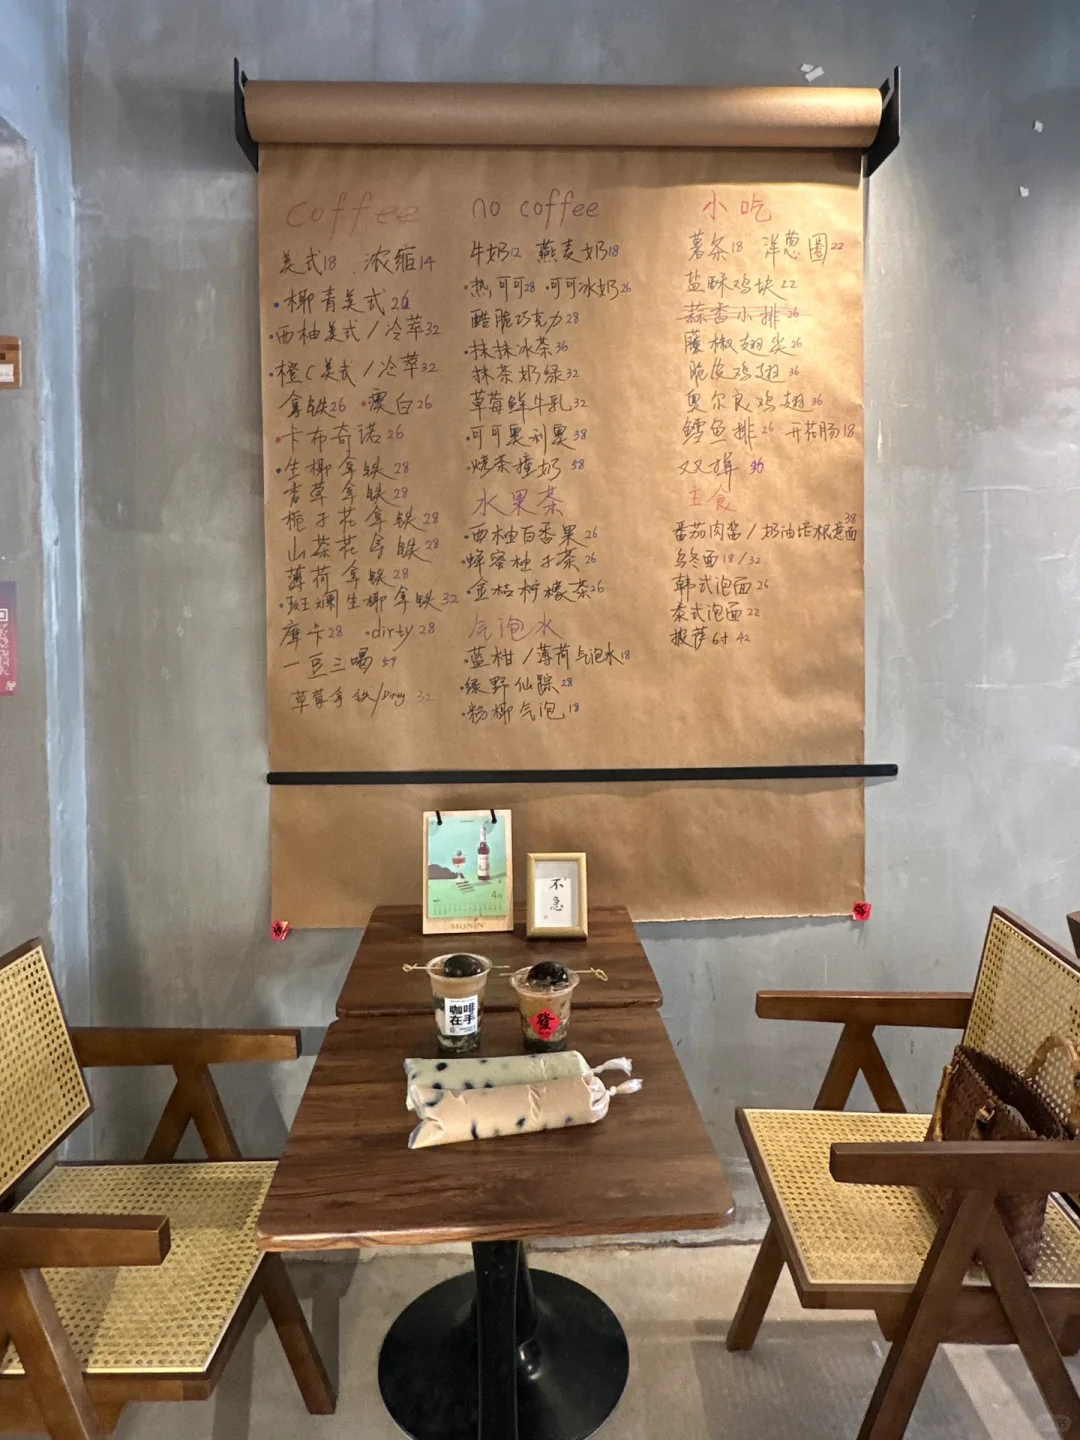 coffee
美式18 浓缩14
·椰青美式26
·西柚美式/冷萃32
·橙C美式/冷萃32
拿铁26 ·澳白26
·卡布奇诺26
·生椰拿铁28
香草拿铁28
栀子花拿铁28
山茶花拿铁28
薄荷拿铁28
·斑斓生椰拿铁32
摩卡28 ·dirty28
一豆三喝59
草莓拿铁/Dirty 32
no coffee
牛奶12 燕麦奶18
·热可可28 ·可可冰奶26
酷脆巧克力28
·抹抹冰茶36
抹茶奶绿32
草莓鲜牛乳32
·可可奥利奥38
·烧茶撞奶58
水果茶
·西柚百香果26
·蜂蜜柚子茶26
·金桔柠檬茶26
气泡水
·蓝柑/薄荷气泡水18
·绿野仙踪28
·粉椰气泡18
小吃
薯条18 洋葱圈22
盐酥鸡块22
蒜香小排26
藤椒翅尖26
脆皮鸡翅36
奥尔良鸡翅36
鳕鱼排26 开花肠18
双拼36
主食
番茄肉酱/奶油培根意面38
乌冬面18/32
韩式泡面26
泰式泡面22
披萨6寸42
4月
MONIN
不急
咖啡
在手
發